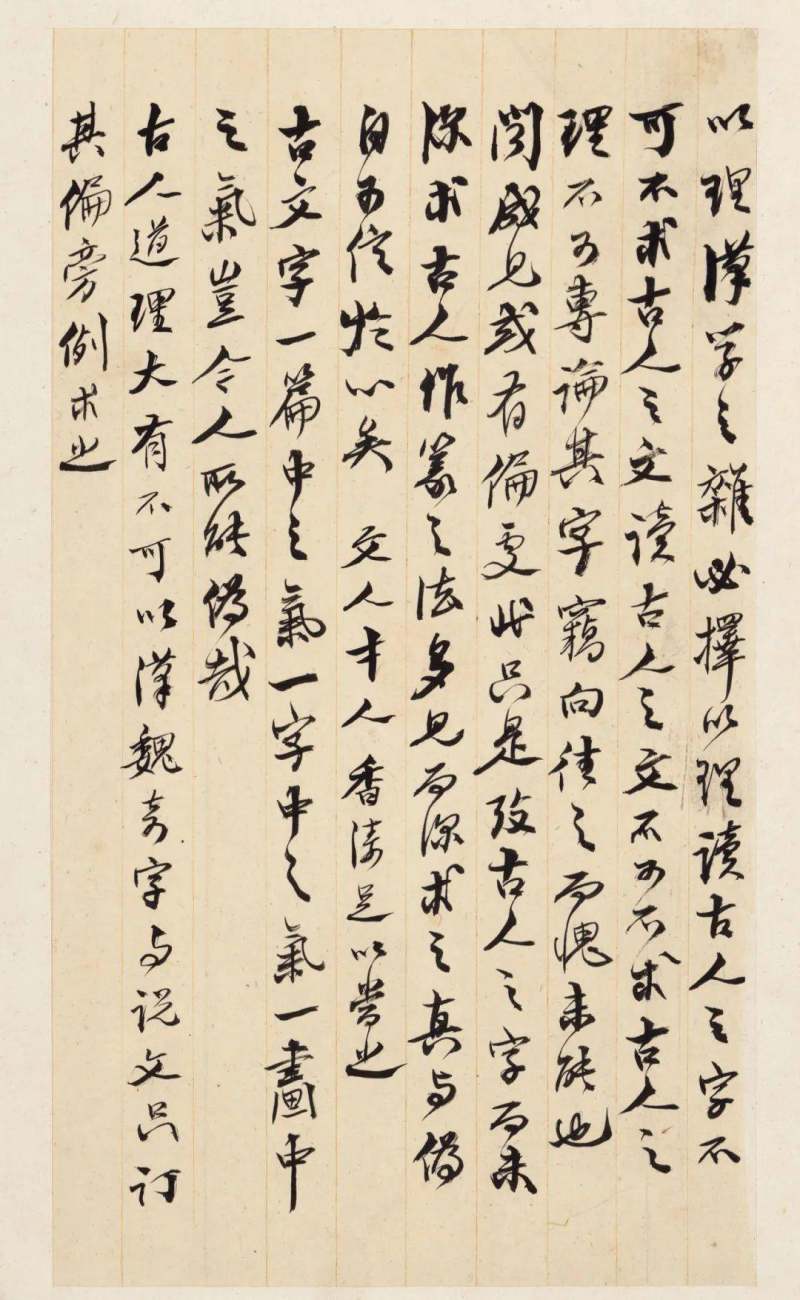 以理漢学之雜必擇以理讀古人之字不
可不求古人之文讀古人之文不可不求古人之
理不可專論其字竊向往之而愧未能也
閒成見或有偏更此只是攷古人之字而未
深求古人作篆之法多見而深求之真与偽
自可信於心矣 文人才人香濤足以當之
古文字一篇中之氣一字中之氣一畫中
之氣豈今人所能偽哉
古人道理大有不可以漢魏奇字与説文只訂
其偏旁例求之